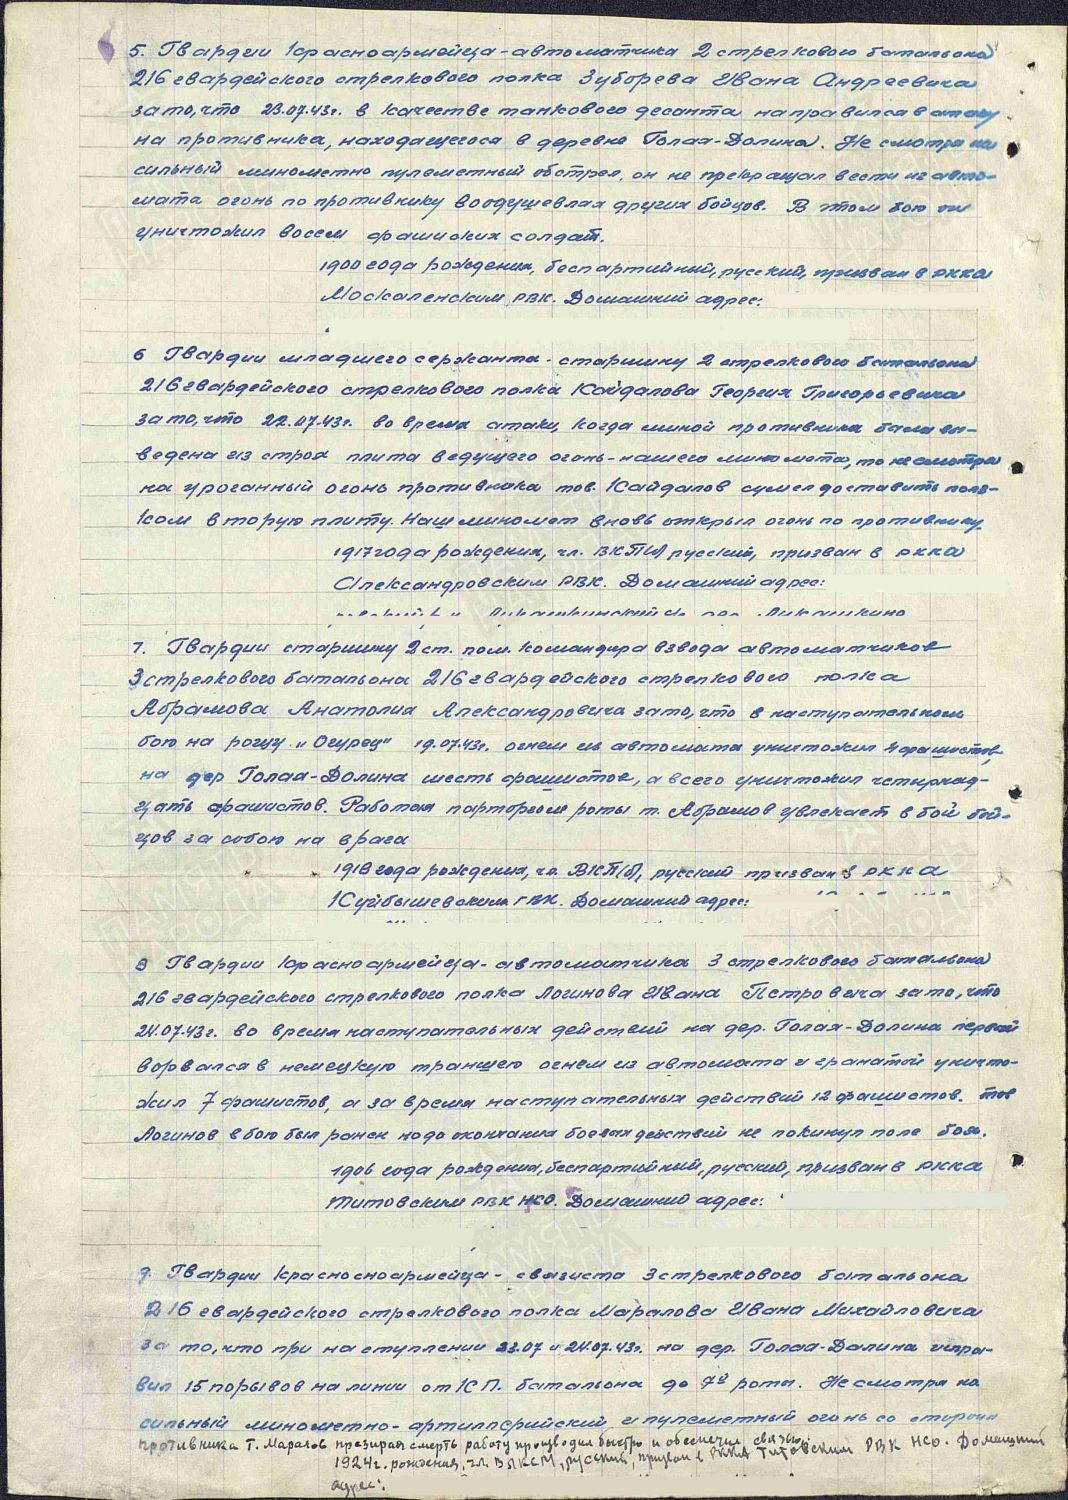 5. Гвардии красноармейца-автоматчика 2 стрелкового батальона
216 гвардейского стрелкового полка Зуборева Ивана Андреевича
за то, что 23.07.43г. в качестве танкового десанта направился в атаку
на противника, находящегося в деревне Голая-Долина. Не смотря на
сильный минометно пулеметный обстрел, он не прекращал вести из авто-
мата огонь по противнику воодушевляя других бойцов. В этом бою он
уничтожил восем фашиских солдат.
1900 года рождения, беспартийный, русский, призван в РККА
Москаленским РВК. Домашний адрес:
6 Гвардии младшего сержанта-старшину 2 стрелкового батальона
216 гвардейского стрелкового полка Кайдалова Георгия Григорьевича
за то, что 22.07.43г. во время атаки, когда миной противника была вы-
ведена из строя плита ведущего огонь-нашего миномета, то не смотря
на ураганный огонь противника тов. Кайдалов сумел доставить полз-
ком вторую плиту. Наш миномет вновь открыл огонь по противнику.
1917 года рождения, чл. ВКП(б) русский, призван в РККА
Александровским РВК. Домашний адрес:
7. Гвардии старшину 2 ст. пом. командира взвода автоматчиков
3 стрелкового батальона 216 гвардейского стрелкового полка
Абрамова Анатолия Александровича за то, что в наступательном
бою на рощу „Огурец" 19.07.43г. огнем из автомата уничтожил 4 фашистов,
на дер Голая-Долина шесть фашистов, а всего уничтожил четырнад-
цать фашистов. Работая парторгом роты т. Абрамов увлекает в бой бой-
цов за собою на врага
1918 года рождения, чл. ВКП(б), русский призван в РККА
Куйбышевским ГВК. Домашний адрес:
8 Гвардии красноармейца-автоматчика 3 стрелкового батальона
216 гвардейского стрелкового полка Логинова Ивана Петровича за то, что
24.07.43г. во время наступательных действий на дер. Голая-Долина первый
ворвался в немецкую траншею огнем из автомата и гранатой уничто-
жил 7 фашистов, а за время наступательных действий 12 фашистов. тов
Логинов в бою был ранен но до окончания боевых действий не покинул поле боя.
1906 года рождения, беспартийный, русский, призван в РККА
Титовским РВК НСО. Домашний адрес:
9. Гвардии Красносноармейца-связиста 3 стрелкового батальона
216 гвардейского стрелкового полка Маралова Ивана Михайловича
за то, что при наступлении 23.07 и 24.07.43г. на дер. Голая-Далина испра-
вил 15 порывов на линии от К.П. батальона до 7й роты. Не смотря на
сильный минометно-артиллерийский и пулеметный огонь со стороны
противника Т. Маралов презирая смерть работу производил быстро и обеспечил связью.
1924г. рождения, чл. ВЛКСМ, русский, призван в РККА Титовским РВК НСО. Домашний
адрес:
ПАМЯТЬ НАРОДА